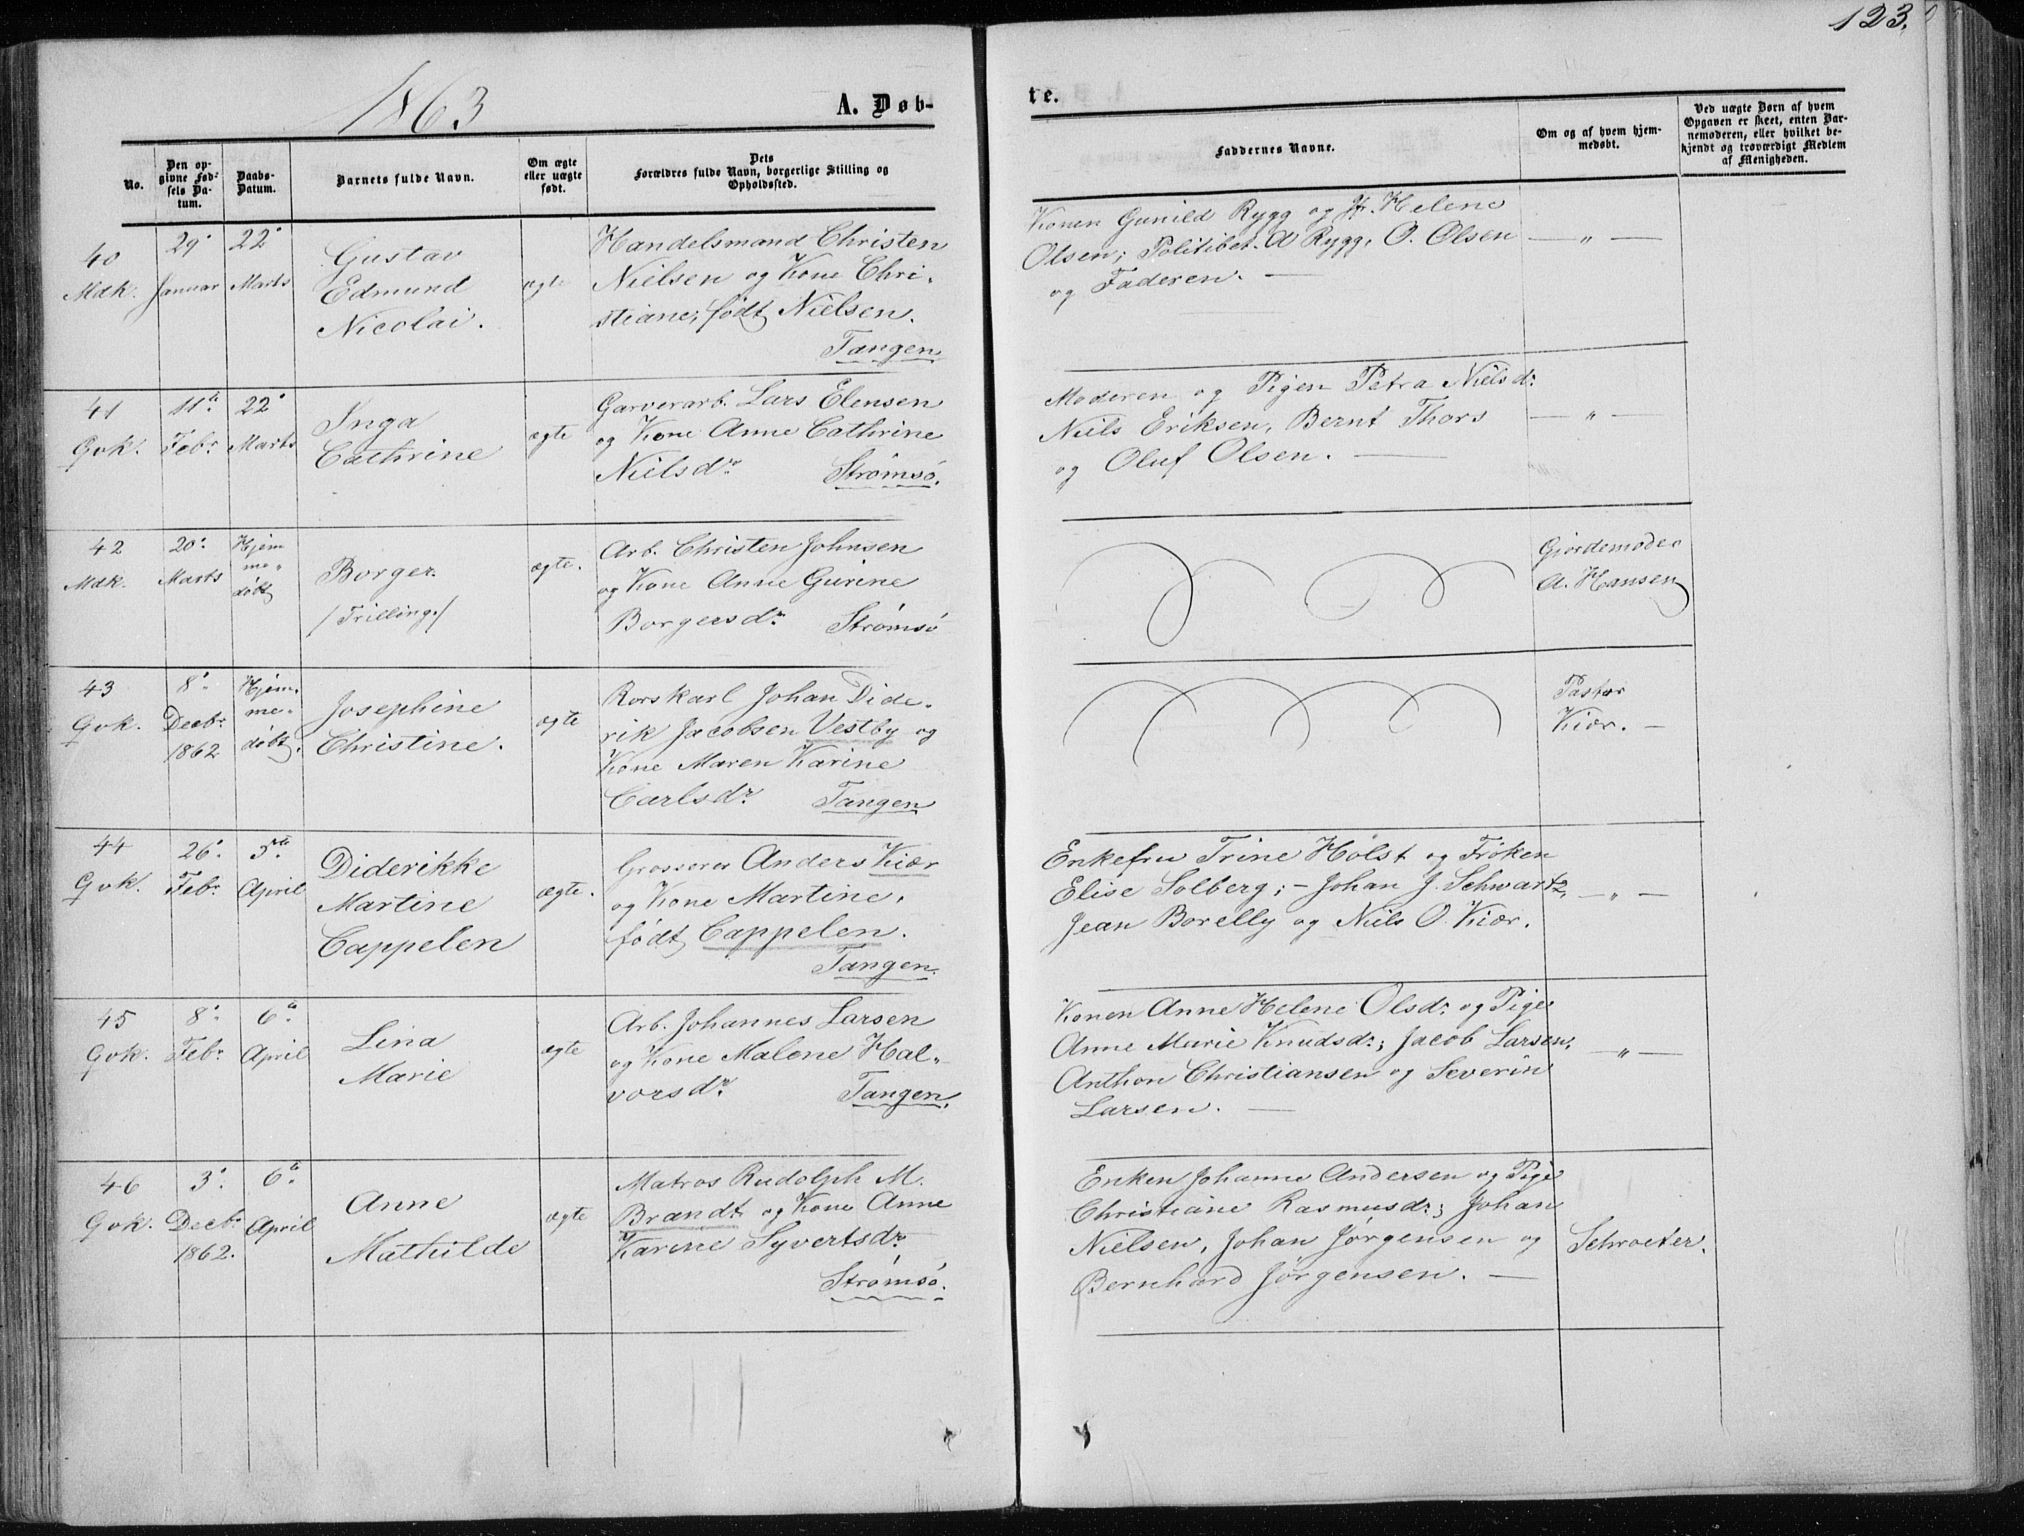 123.
1863
A. Døb-
te.
No.
Den op-
givne Fød-
sels Da-
tum.
Daabs-
Datum.
Barnets fulde Navn.
Om ægte
eller uægte
født.
Dets
Forældres fulde Navn, borgerlige Stilling og
Opholdssted.
Faddernes Navne.
Om og af hvem hjem-
medøbt.
Ved uægte Børn af hvem
Opgaven er skeet, enten Bar-
nemoderen, eller hvilket be-
kjendt og troværdigt Medlem
af Menigheden.
40
Mdk.
29'
Januar
22'
Marts
Gustav
Edmund
Nicolai.
ægte
Handelsmand Christen
Nielsen og Kone Chri-
stiane, født Nielsen.
Tangen
Konen Gunild Rygg og Jfr. Helene
Olsen; Politibet. A Rygg, O. Olsen
og Faderen. —
— " —
41
Qvk.
11te
Febr
22'
Marts
Inga
Cathrine
ægte
Garverarb. Lars Elensen
og Kone Anne Cathrine
Nielsdr
Strømsø.
Moderen og Pigen Petra Nielsd:
Niels Eriksen, Bernt Thors
og Oluf Olsen. —
— " —
42
Mdk.
20'
Marts
Hjem
me-
døbt
Borger.
/Trilling./
ægte.
Arb. Christen Johnsen
og Kone Anne Gurine
Borgersdr
Strømsø
Gjordemoder
A. Hansen
43
Qvk.
8'
Decbr
1862
Hjem-
me-
døbt.
Josephine
Christine.
ægte
Rorskarl Johan Dide-
rik Jacobsen Vestby og
Kone Maren Karine
Carlsdr
Tangen
Pastor
Kiær. —
44
Qvk.
26'
Febr
5te
April
Diderikke
Martine
Cappelen
ægte.
Grosserer Anders Kiær
og Kone Martine,
født Cappelen.
Tangen.
Enkefru Trine Holst og Frøken
Elise Solberg; — Johan J. Schwartz,
Jean Borelly og Niels O. Kiær.
— " —
45
Qvk.
8'
Febr
6te
April
Lina
Marie
ægte
Arb. Johannes Larsen
og Kone Malene Hal-
vorsdr
Tangen.
Konen Anne Helene Olsdr og Pige
Anne Marie Knudsdr; Jacob Larsen,
Anthon Christiansen og Severin
Larsen. —
— " —
46
Qvk.
3'
Decbr
1862.
6te
April
Anne
Mathilde
ægte
Matros Rudolph M.
Brandt og Kone Anne
Karine Syvertsdr
Strømsø.
Enken Johanne Andersen og Pige
Christiane Rasmusdr; Johan
Nielsen, Johan Jørgensen og
Bernhard Jørgensen. —
Schroeter.